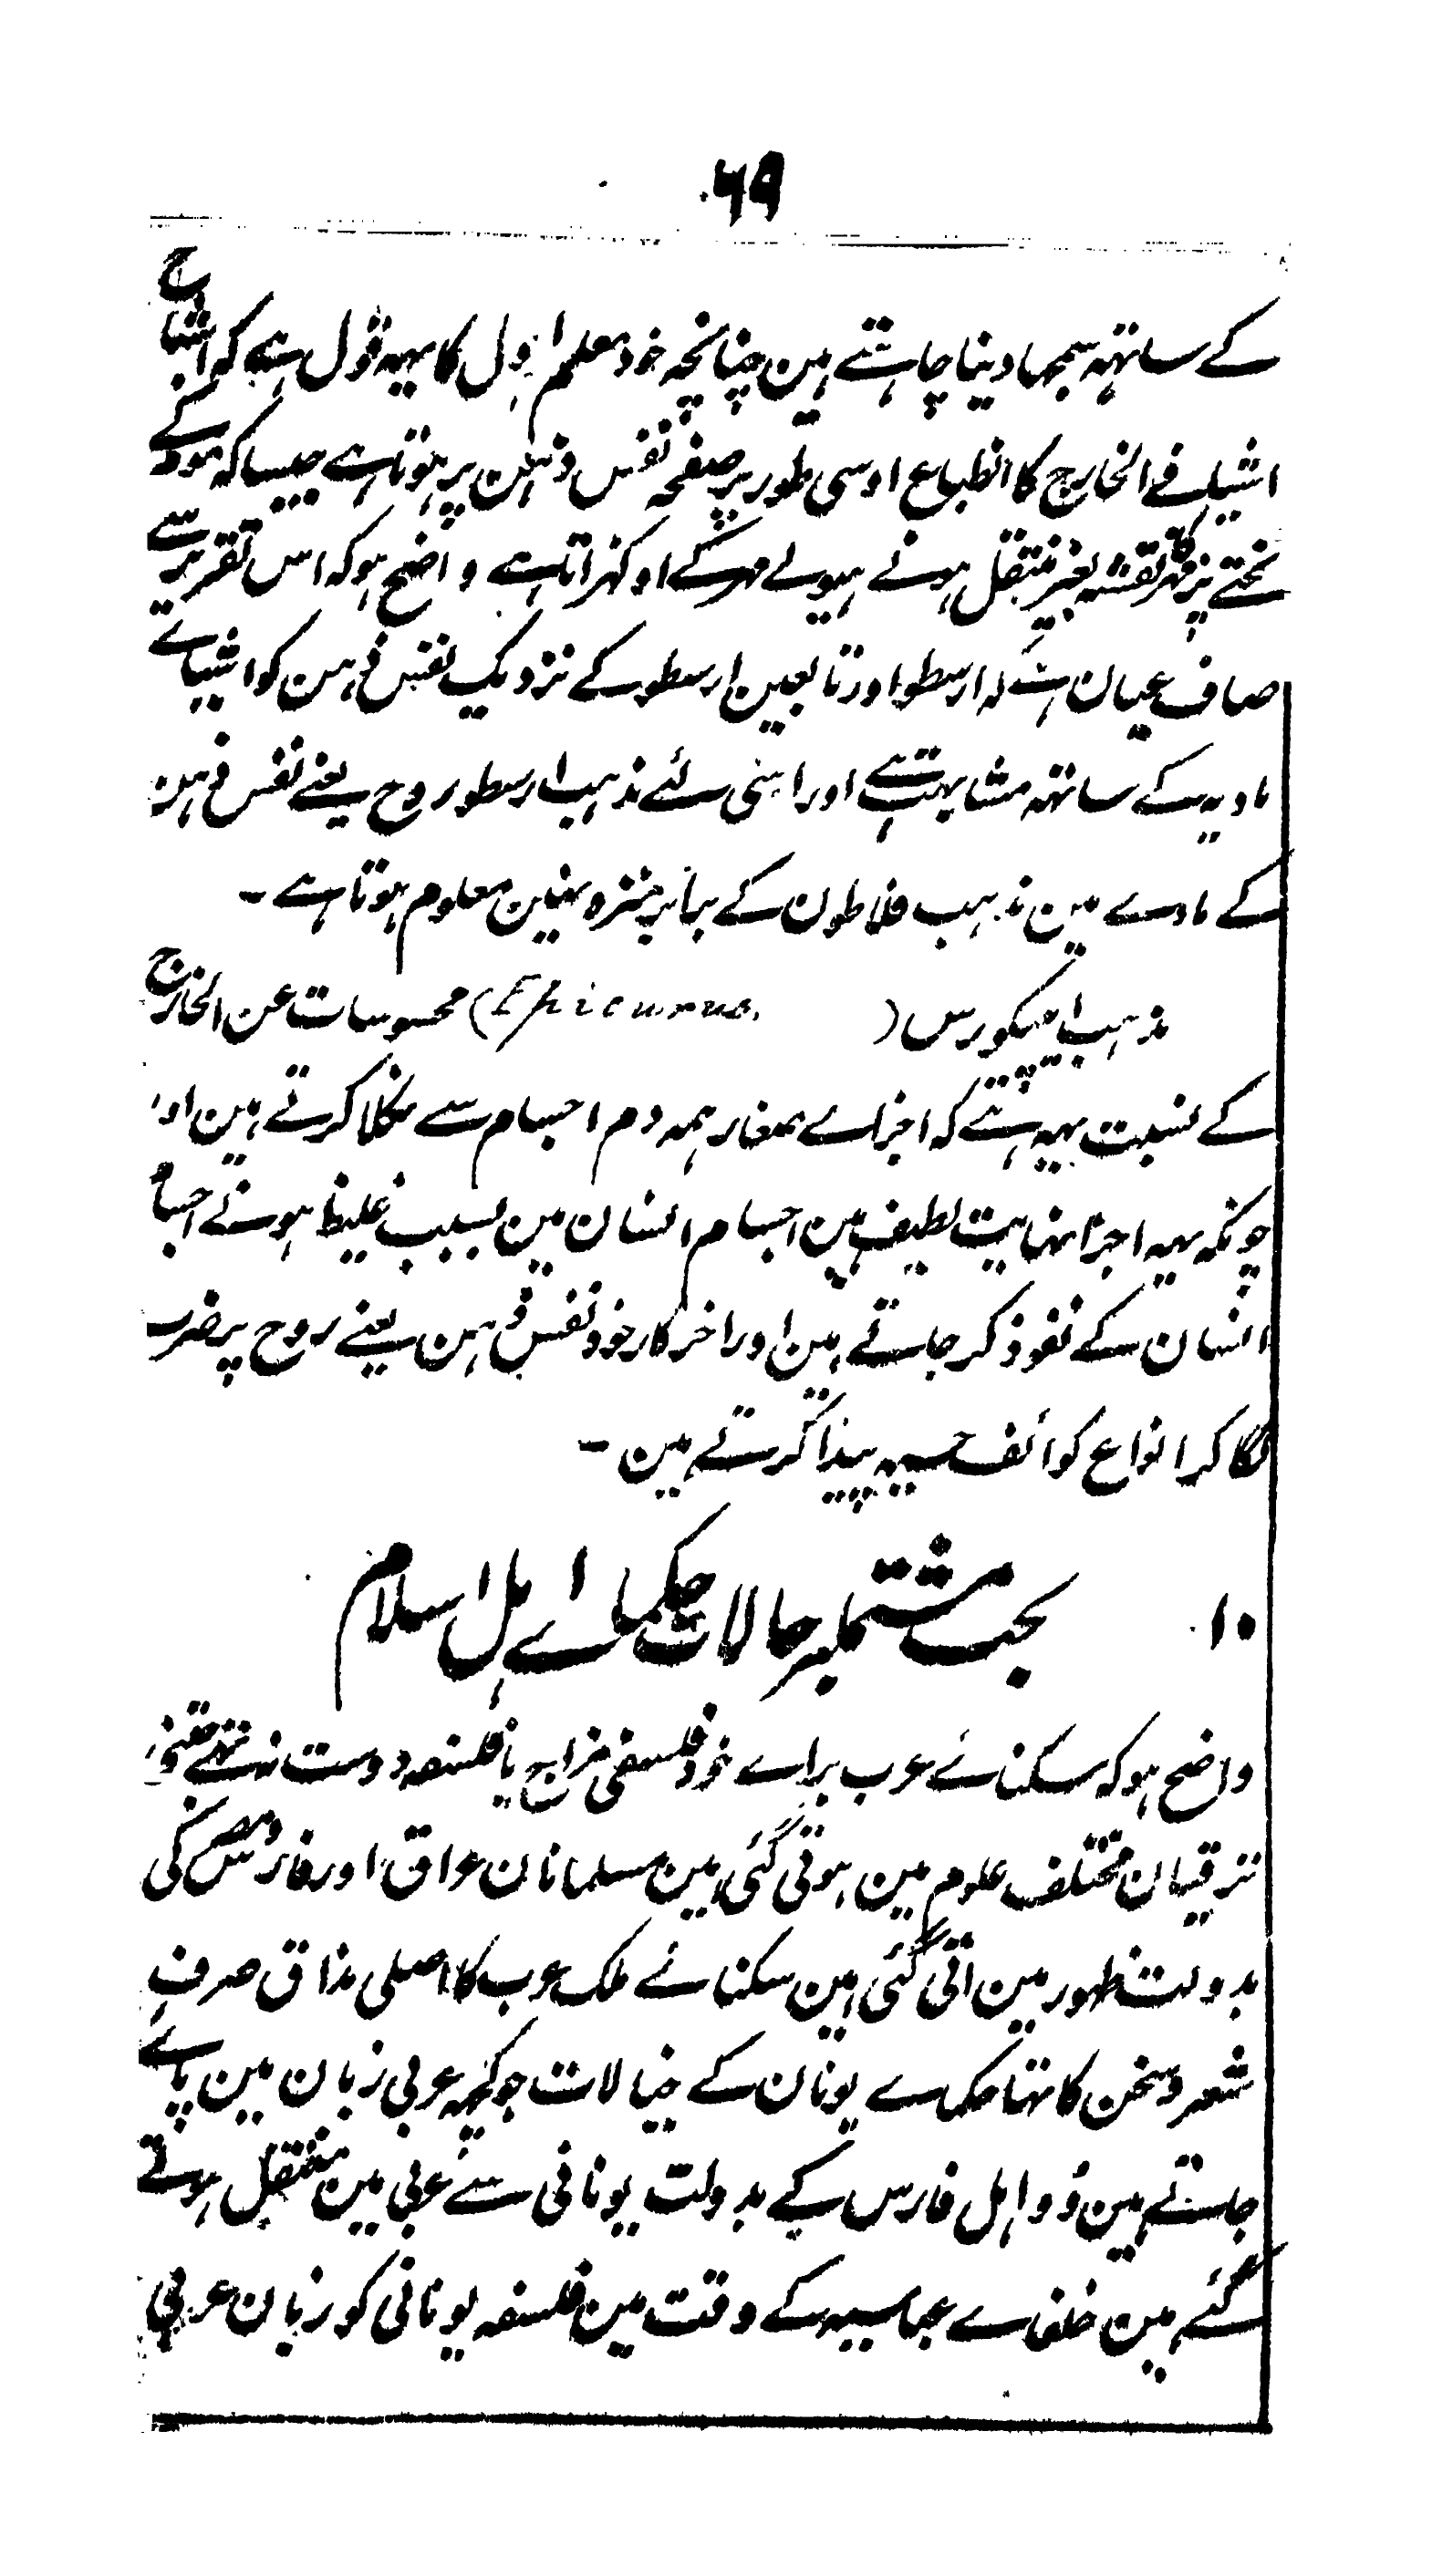 ۶۹
کے ساتہہ سمجہا دینا چاہتے ہین چنانچہ خود معلم اول کا یہہ قول ہے کہ اشباح
اشیاے فے الخارج کا انطباع اوسی طور پر صفحہ نفس ذہن پر ہوتا ہے جیسا کہ موم کے
تختے پر مہر کا نقشہ بغیر منتقل ہونے ہیولے مہر کے اوکہڑ اتا ہے واضح ہو کہ اس تقریر سے
صاف عیان ہے کہ ارسطو اور تابعین ارسطو کے نزدیک نفس ذہن کو اشیاے
مادیہ کے ساتہہ مشابہت ہے اور اسی لئے مذہب ارسطو روح یعنے نفس ذہن
کے مادے مین مذہب فلاطون کے برابر منزہ نہین معلوم ہوتا ہے ۔
مذہب اپیکورس (Epicurus.) محسوسات عن الخارج
کے نسبت یہہ ہے کہ اجزاے صغار ہمہ دم اجسام سے نکلا کرتے ہین اور
چونکہ یہہ اجزا نہایت لطیف ہین اجسام انسان مین بسبب غلیظ ہونے اجسام
انسان کے نفوذ کر جاتے ہین اور اخر کار خود نفس ذہن یعنے روح پر ضرب
لگا کر انواع کوائف حسیہ پیدا کرتے ہین ۔
۱۰ بحث مشتملبر حالات حکماے اہل اسلام
واضح ہو کہ سکنائے عرب براے خود فلسفی مزاج یا فلسفہ دوست نہ تہے جتنی
ترقیان مختلف علوم مین ہوتی گئی ہین مسلمانان عراق اور فارس ومصر کی
بدولت ظہور مین اتی گئی ہین سکنائے ملک عرب کا اصلی مذاق صرف
شعر و سخن کا تہا حکماے یونان کے خیالات جو کچہہ عربی زبان مین پاے
جاتے ہین وُو اہل فارس کے بدولت یونانی سے عربی مین منتقل ہوتے
گئے ہین خلفاے عباسیہ کے وقت مین فلسفہ یونانی کو زبان عربی